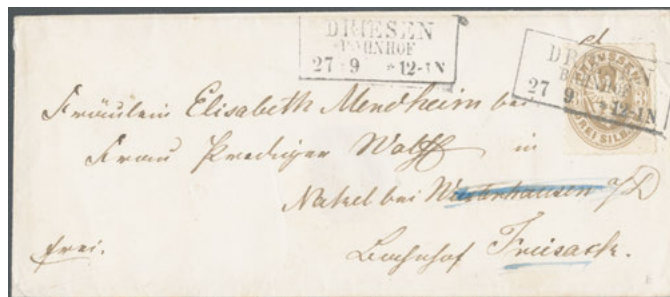 DRIESEN
BAHNHOF
27 9 * 12-1N
DRIESEN
BAHNHOF
27 9 * 12-1N
PREUSSEN
3
DREI SILB.
Fräulein Elisabeth Mendheim bei
Frau Prediger Wolff in
Nakel bei Wusterhausen a/D
frei.
Bahnhof Friesack.